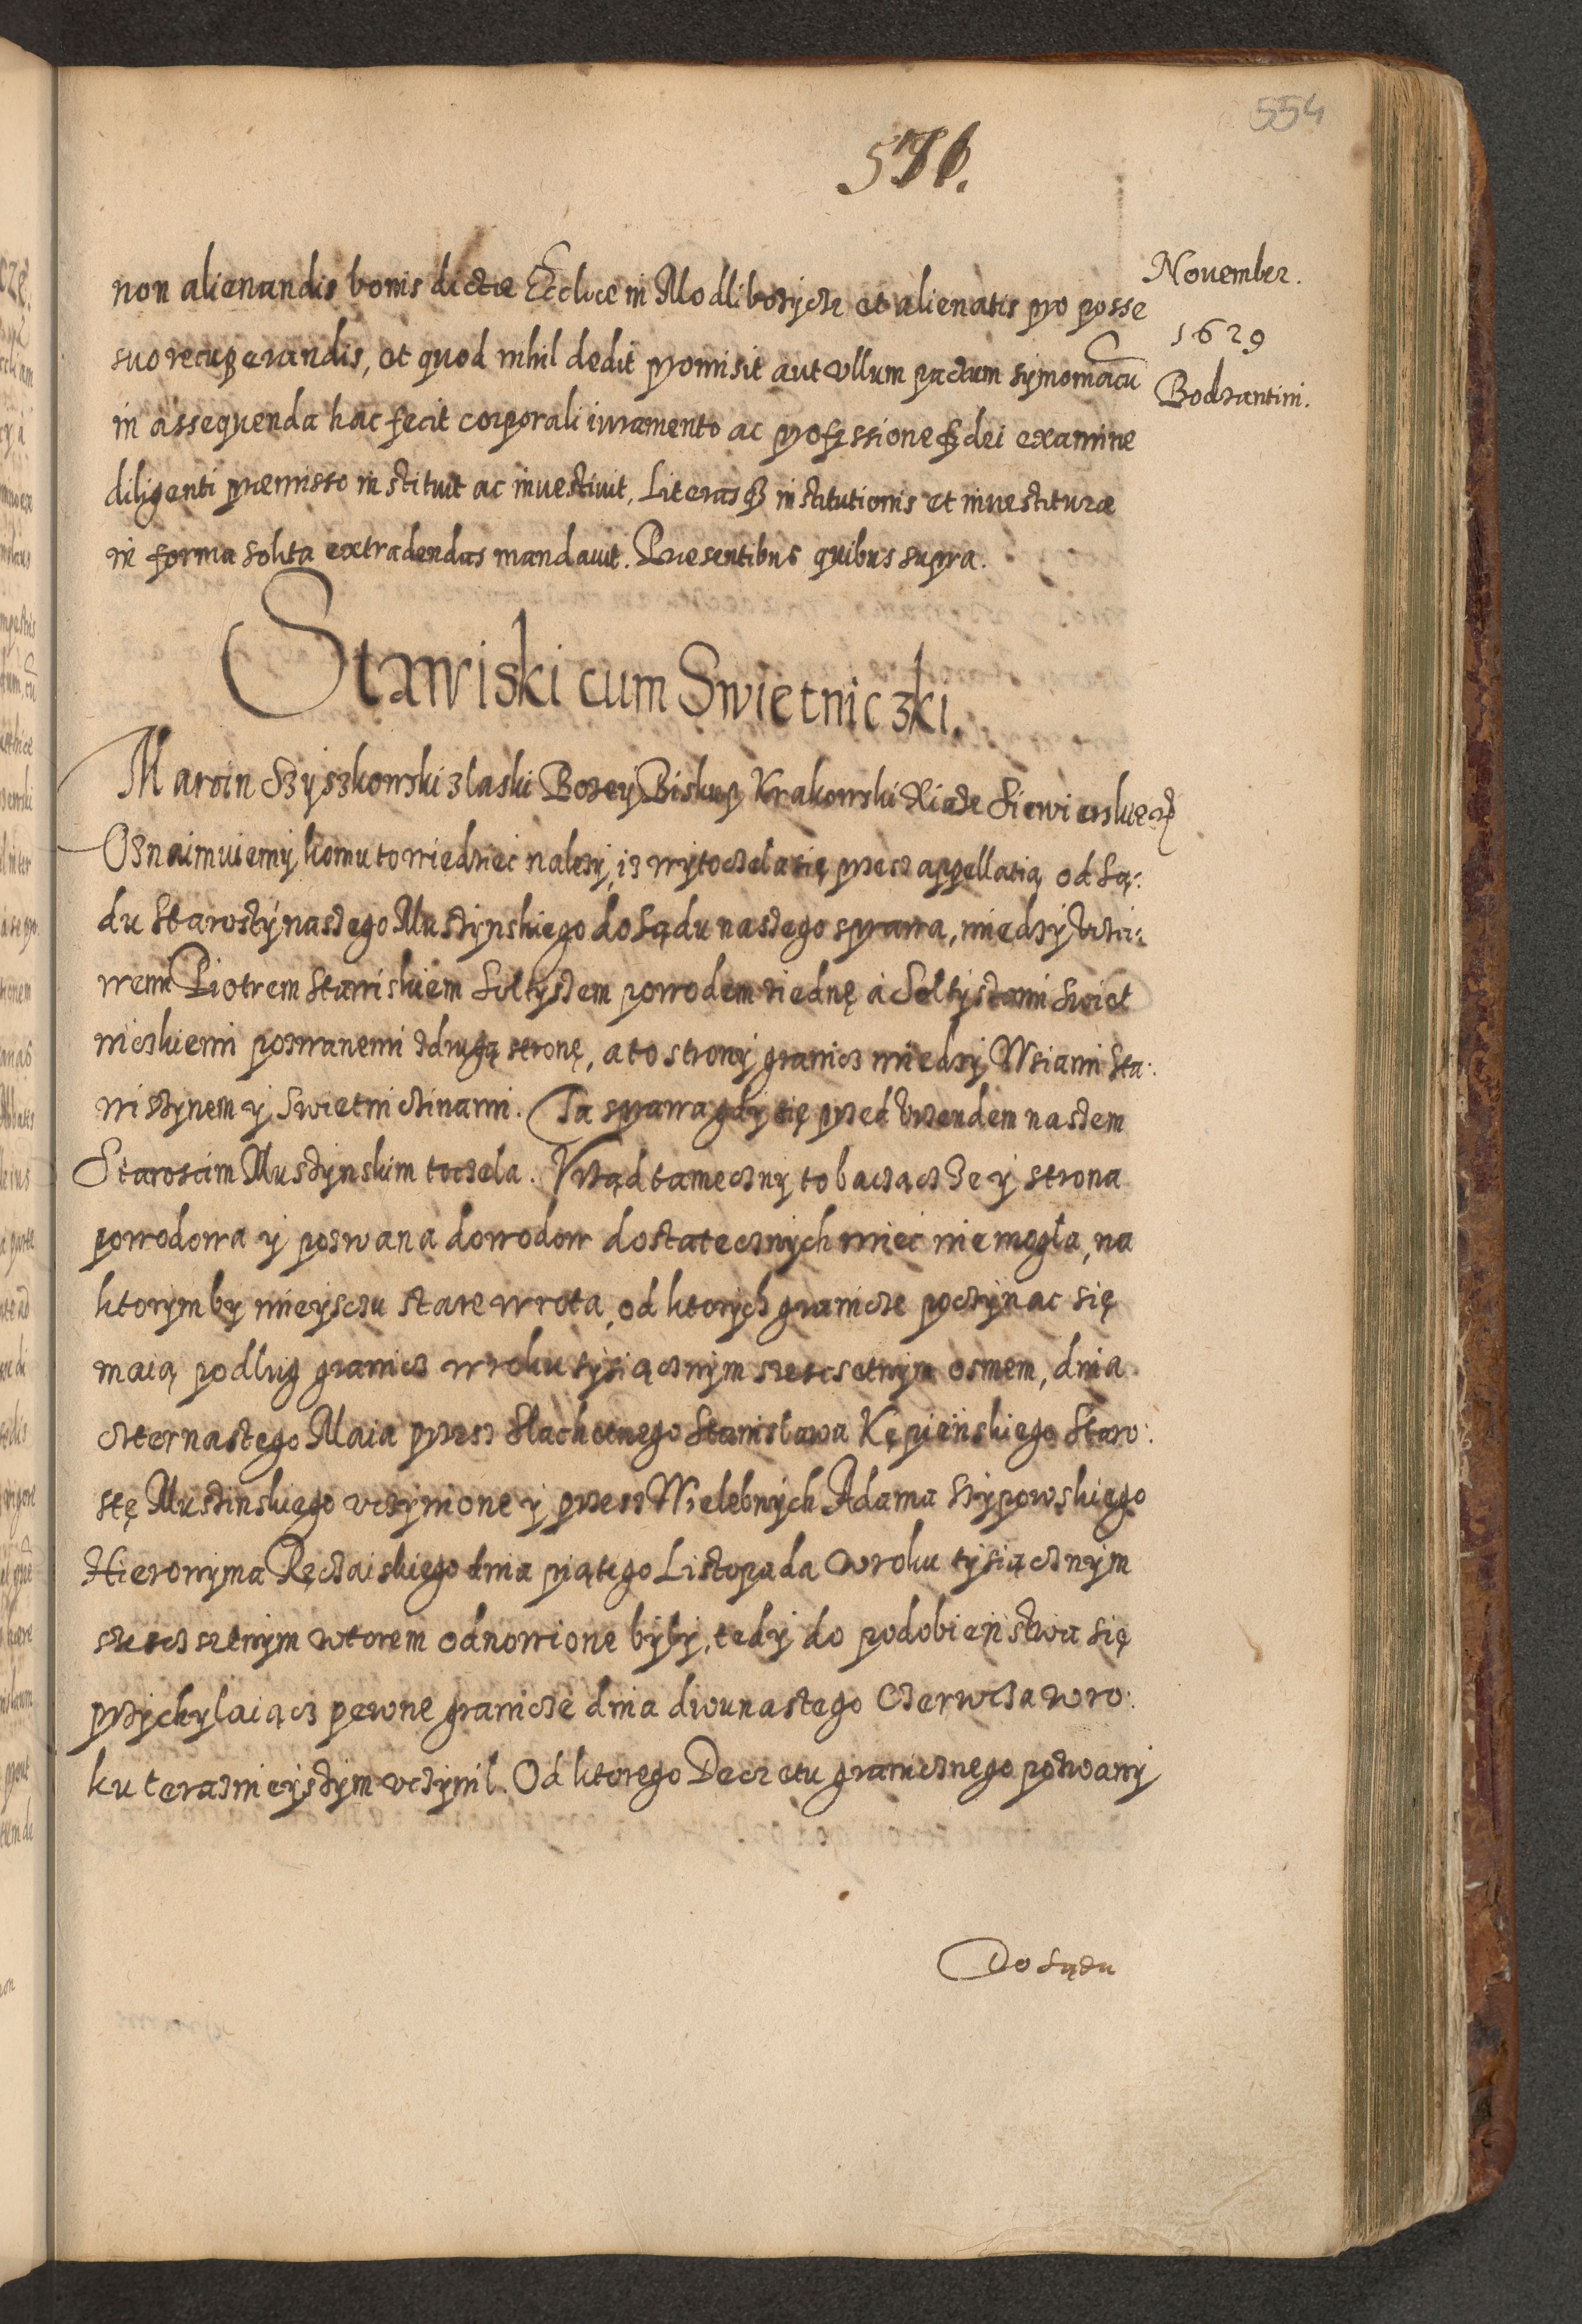 554
576.
November.
1629
Bodzantini.
non alienandis bonis dictæ Eccliæ in Modlibozycze et alienatis pro posse
suo recuperandis, et quod nihil dedit promisit aut vllum pactum symoniacũ
in assequenda hac fecit corporali iuramento ac professione fidei examine
diligenti præmisso instituit ac inuestiuit, Literasq́ institutionis et inuestituræ
in forma solita extradendas mandauit. Præsentibus quibus supra.
Stawiski cum Swietniczki.
Marcin Szyszkowski z laski Bozey Biskup Krakowski Xiąże Siewierskie
Oznaimuiemy komu to wiedziec nalezy, iz wytoczela się przez appellatią od Są:
du Starosty naszego Muszynskiego do Sądu naszego sprawa, miedzy
wem Piotrem Stawiskiem Soltyszem powodem z iednę à Soltyszami Swiet
niczkiemi pozwanemi z drugą stronę, a to strony granicz miedzy Wsiami Sta:
wiszynem y Swietniczinami. Ta sprawa gdy się przed Vrzendem naszem
Staroscim Muszynskim toczela. Vrząd tameczny to baczącz ze y strona
powodowa y pozwana dowodow dostatecznych miec nie mogła, na
ktorym by mieysczu stare wrota, od ktorych granicze poczynac się
maią podlug granicz w roku tysiącznym szescsetnym osmem, dnia
czternastego Maia przez Slachetnego Stanisława Kępieńskiego Staro:
stę Muszinskiego vczynione y przez Wielebnych Adama Szypowskiego
Hieronyma Ręczaiskiego dnia piątego Listopada w roku tysiącznym
szescz setnym wtorem odnowione były, tedy do podobieństwa się
przychylaiącz pewne granicze dnia dwunastego Czerwcza w ro:
ku teraznieyszym vczynil. Od ktorego Decretu granicznego pozwany
Do Sądu